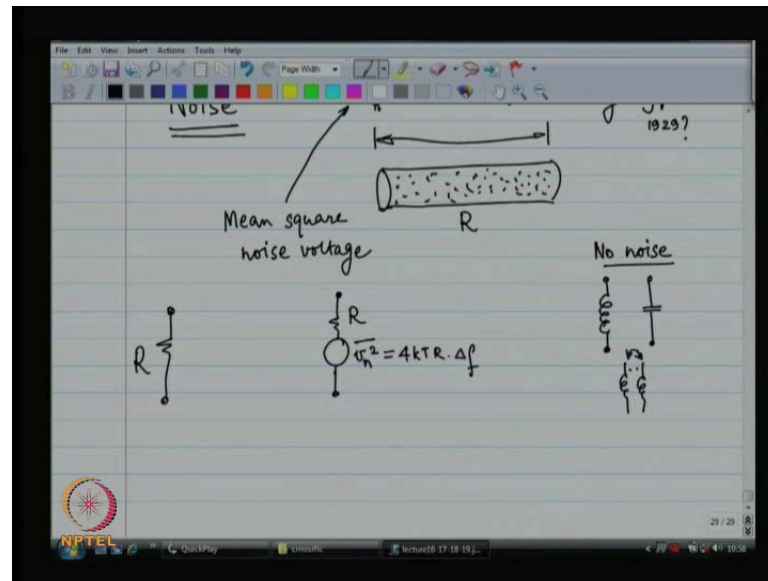 File Edit View Insert Actions Tools Help
Page Width
Noise
1929?
Mean square
noise voltage
R
No noise
R
R
v̅ₙ² = 4kTR·Δf
29 / 29
NPTEL
QuickPlay
cmosrfic
lecture16-17-18-19.j...
10:58